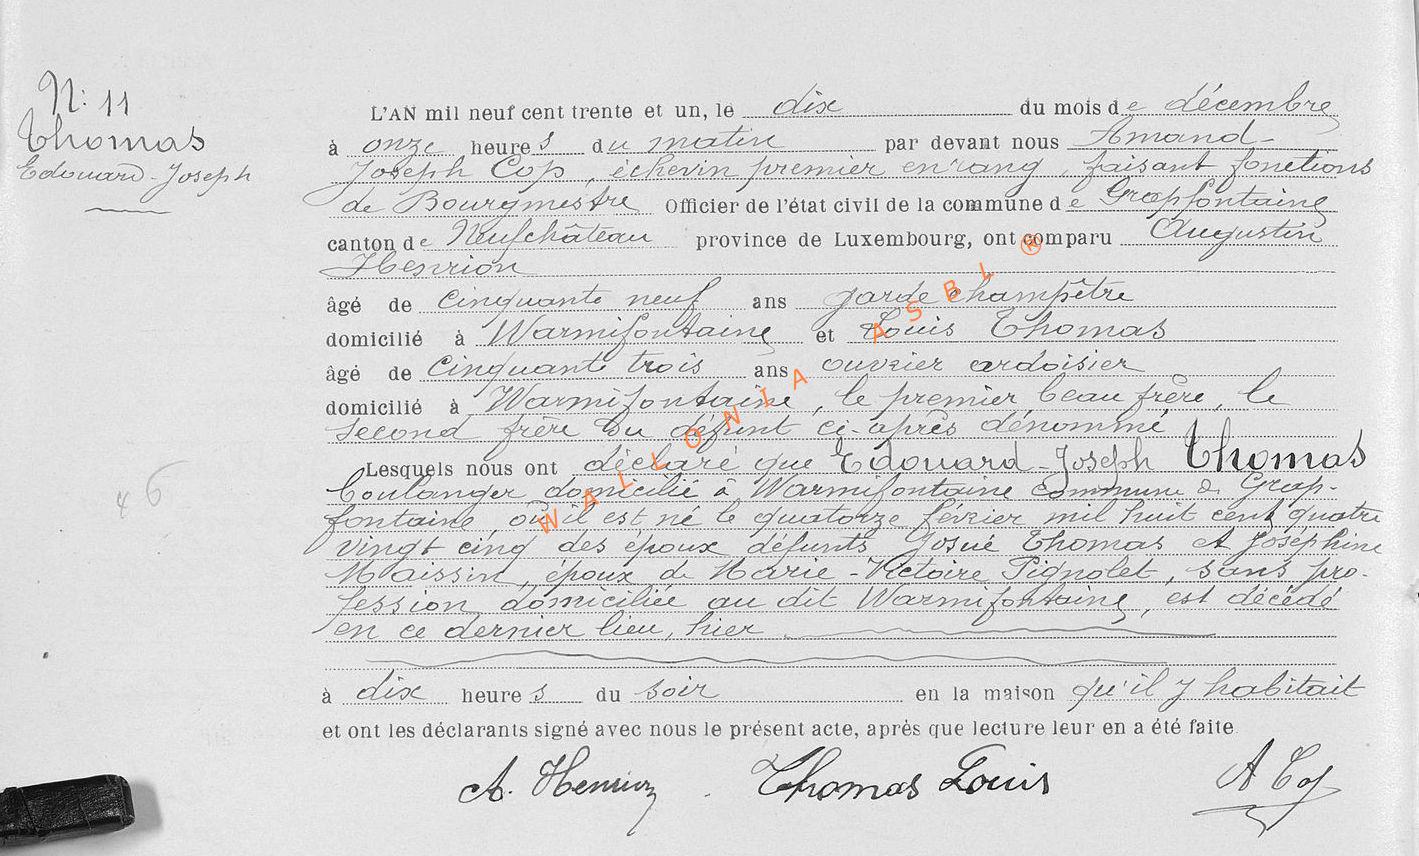 N: 11
Thomas
Edouard-Joseph
L'AN mil neuf cent trente et un, le dix du mois de décembre
à onze heures du matin par devant nous Amand-
Joseph Cop, échevin premier en rang, faisant fonctions
de Bourgmestre Officier de l'état civil de la commune de Grapfontaine
canton de Neufchâteau province de Luxembourg, ont comparu Augustin
Henrion
âgé de cinquante neuf ans garde champêtre
domicilié à Warmifontaine et Louis Thomas
âgé de cinquante trois ans ouvrier ardoisier
domicilié à Warmifontaine, le premier beau frère, le
second frère du défunt ci-après dénommé
Lesquels nous ont déclaré que Edouard-Joseph Thomas
boulanger domicilié à Warmifontaine commune de Grap-
fontaine, où il est né le quatorze février mil huit cent quatre
vingt cinq des époux défunts Josué Thomas et Joséphine
Maissin, époux de Marie-Victoire Pignolet, sans pro-
fession domiciliée au dit Warmifontaine, est décédé
en ce dernier lieu, hier
à dix heures du soir en la maison qu'il y habitait
et ont les déclarants signé avec nous le présent acte, après que lecture leur en a été faite
A. Henrion Thomas Louis A Cop
46
WALLONIA ASBL ®